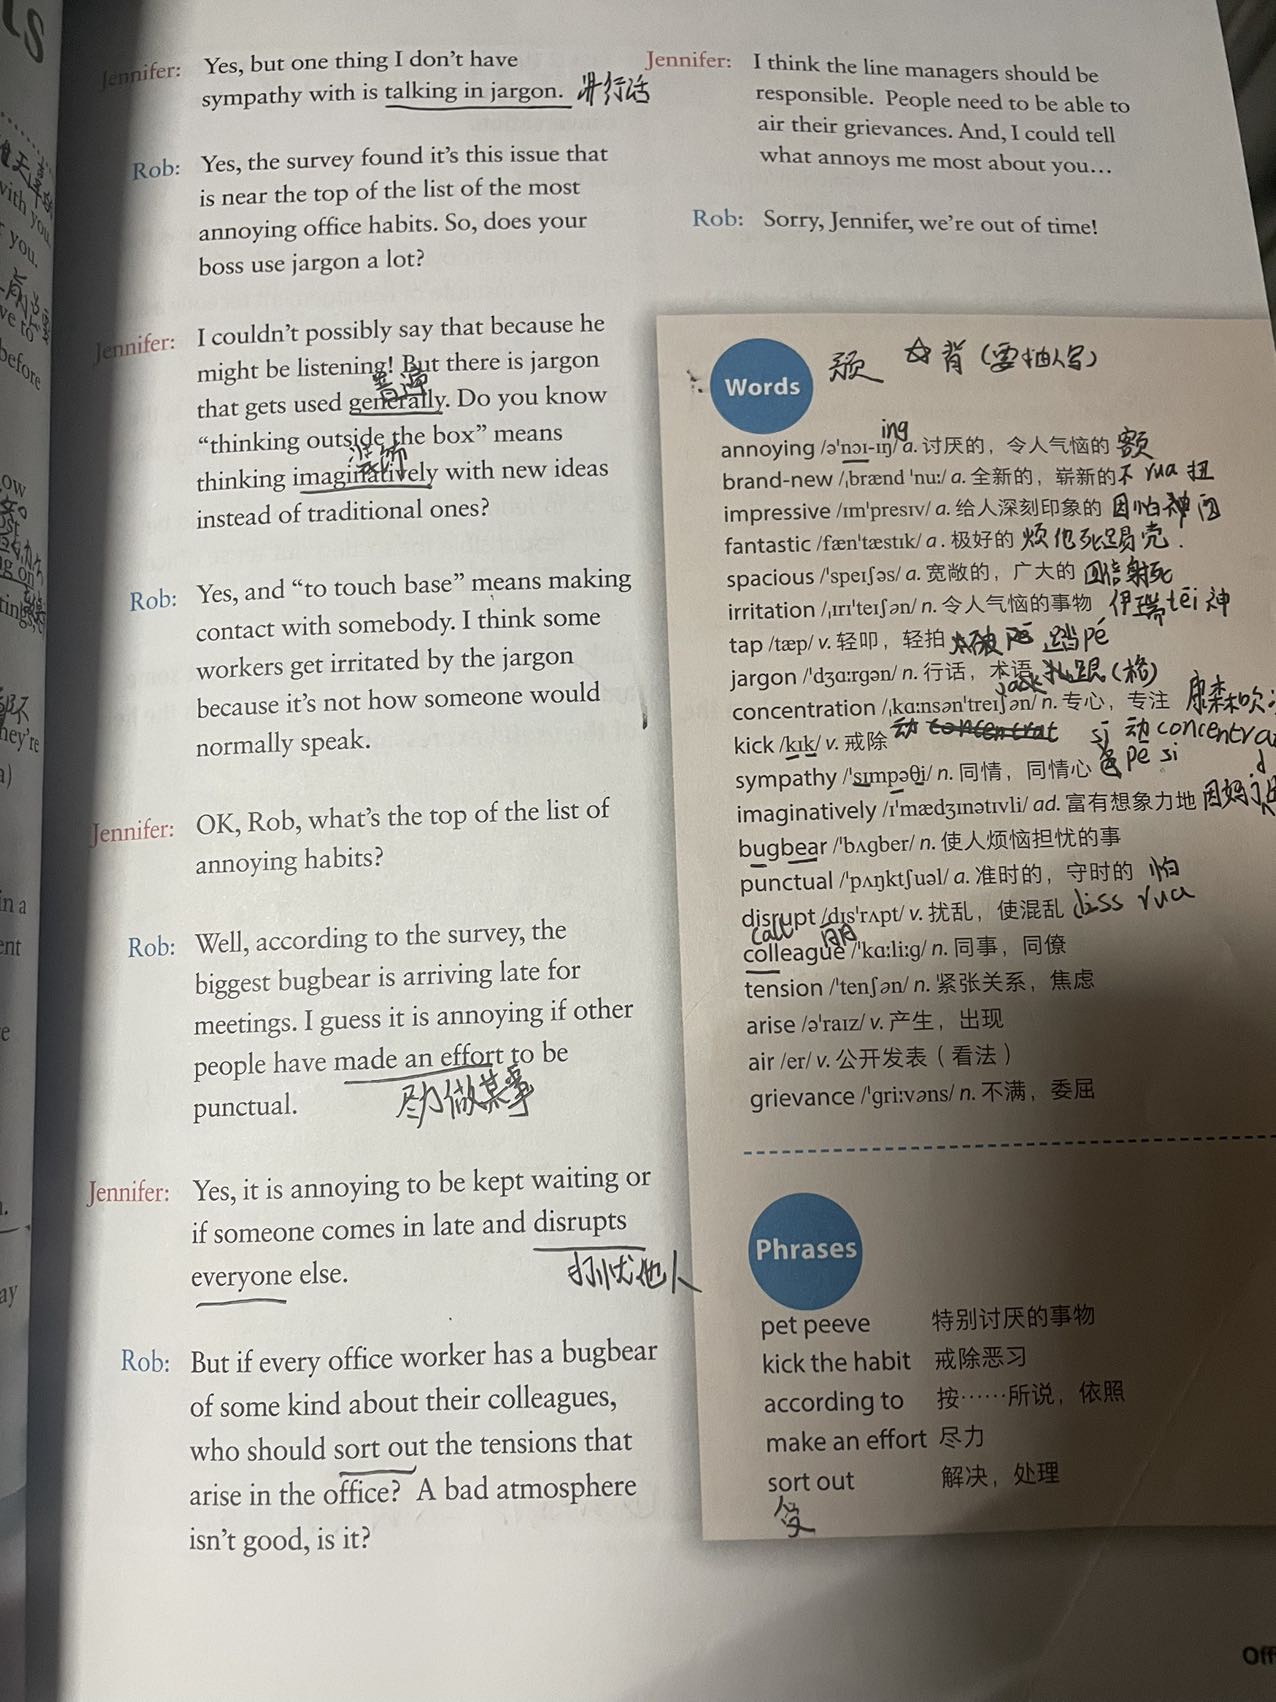 Jennifer: Yes, but one thing I don't have
sympathy with is talking in jargon. 讲行话
Rob: Yes, the survey found it's this issue that
is near the top of the list of the most
annoying office habits. So, does your
boss use jargon a lot?
Jennifer: I couldn't possibly say that because he
might be listening! But there is jargon
普遍
that gets used generally. Do you know
"thinking outside the box" means
thinking imaginatively with new ideas
instead of traditional ones?
Rob: Yes, and "to touch base" means making
contact with somebody. I think some
workers get irritated by the jargon
because it's not how someone would
normally speak.
Jennifer: OK, Rob, what's the top of the list of
annoying habits?
Rob: Well, according to the survey, the
biggest bugbear is arriving late for
meetings. I guess it is annoying if other
people have made an effort to be
punctual. 尽力做某事
Jennifer: Yes, it is annoying to be kept waiting or
if someone comes in late and disrupts
everyone else. 打扰他人
Rob: But if every office worker has a bugbear
of some kind about their colleagues,
who should sort out the tensions that
arise in the office? A bad atmosphere
isn't good, is it?
Jennifer: I think the line managers should be
responsible. People need to be able to
air their grievances. And, I could tell
what annoys me most about you…
Rob: Sorry, Jennifer, we're out of time!
Words ☆背(要抽写)
ing
annoying /ə'nɔɪ-ɪŋ/ a. 讨厌的，令人气恼的 额
brand-new /ˌbrænd 'nuː/ a. 全新的，崭新的 不 rua 扭
impressive /ɪm'presɪv/ a. 给人深刻印象的 因怕神
fantastic /fæn'tæstɪk/ a. 极好的 烦他死踢壳
spacious /'speɪʃəs/ a. 宽敞的，广大的
irritation /ˌɪrɪ'teɪʃən/ n. 令人气恼的事物 伊瑞tēi神
tap /tæp/ v. 轻叩，轻拍 踏pé
jargon /'dʒɑːrgən/ n. 行话，术语 扎跟(格)
concentration /ˌkɑːnsən'treɪʃən/ n. 专心，专注 康森吹
kick /kɪk/ v. 戒除 动 concentrat 动 concentra
sympathy /'sɪmpəθi/ n. 同情，同情心 pē si
imaginatively /ɪ'mædʒɪnətɪvli/ ad. 富有想象力地 因妈
bugbear /'bʌgber/ n. 使人烦恼担忧的事
punctual /'pʌŋktʃuəl/ a. 准时的，守时的 怕
disrupt /dɪs'rʌpt/ v. 扰乱，使混乱 diss rua
call
colleague /'kɑːliːg/ n. 同事，同僚
tension /'tenʃən/ n. 紧张关系，焦虑
arise /ə'raɪz/ v. 产生，出现
air /er/ v. 公开发表（看法）
grievance /'griːvəns/ n. 不满，委屈
Phrases
pet peeve 特别讨厌的事物
kick the habit 戒除恶习
according to 按……所说，依照
make an effort 尽力
sort out 解决，处理
受
Off